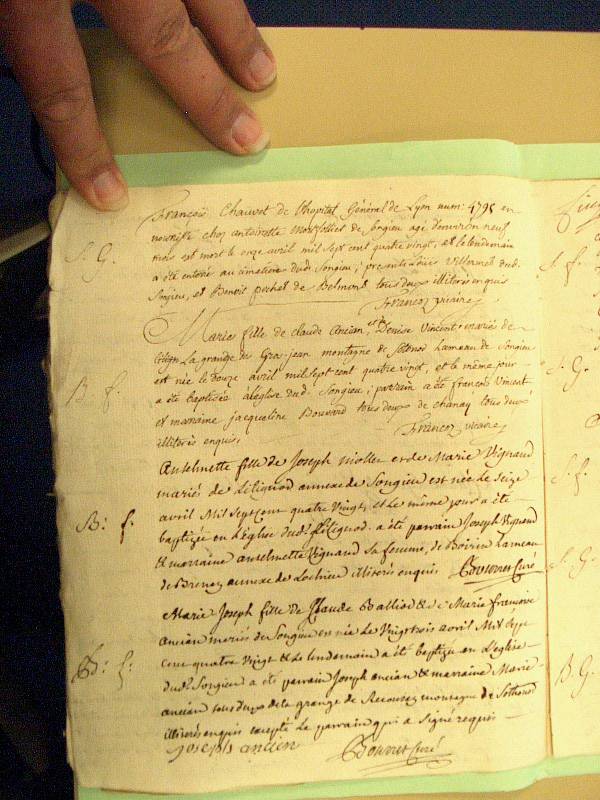 François Chauvet de l'hopital Général de Lyon num: 4795 en
nourisse chez antoinette de Songieu agé d'environ neuf
mois est mort le onze avril mil sept cent quatre vingt, et le lendemain
S. G.
a été enterré au cimetiere dud. Songieu; presents Louis Villermet dud.
Songieu, et Benoit pochet de Belmont tous deux illiterés enquis
Francoz vicaire
Marie fille de claude Ancian, et Denise Vincent mariés de
La grange du Gros-jean montagne de Sothonod hameau de Songieu
est née le douze avril mil sept cent quatre vingt, et le même jour
B f.
a été baptisée a l'eglise dud. Songieu; parrain a été françois Vincent
et marraine jacqueline Bouvard tous deux de chanay tous deux
illiterés enquis.
Francoz vicaire
Anthelmette fille de Joseph mollet et de Marie Vignand
mariés de Lilignod annexe de Songieu est née Le Seize
avril Mil Sept Cent quatre Vingt et Le même jour a été
B: f:
baptizée en L'église dud. Lilignod. a été parrain Joseph Vignand
& marraine anthelmette Vignand Sa femme, de hameau
de Brenaz annexe de Lochieu illiterés enquis Bouvret Curé
Marie Joseph fille de Claude Balliod & de Marie françoise
ancian mariés de Songieu est née Le Vingt trois avril Mil Sept
cent quatre Vingt & Le lendemain a été baptizée en L'eglise
B: f:
dud. Songieu a été parrain Joseph ancian & marraine Marie
ancian tous deux de la grange de montagne de Sothonod
illiterés enquis excepté Le parrain qui a Signé requis
joseph ancien
Bouvret Curé
S. f.
S. G.
S. f.
S. G.
B. G.